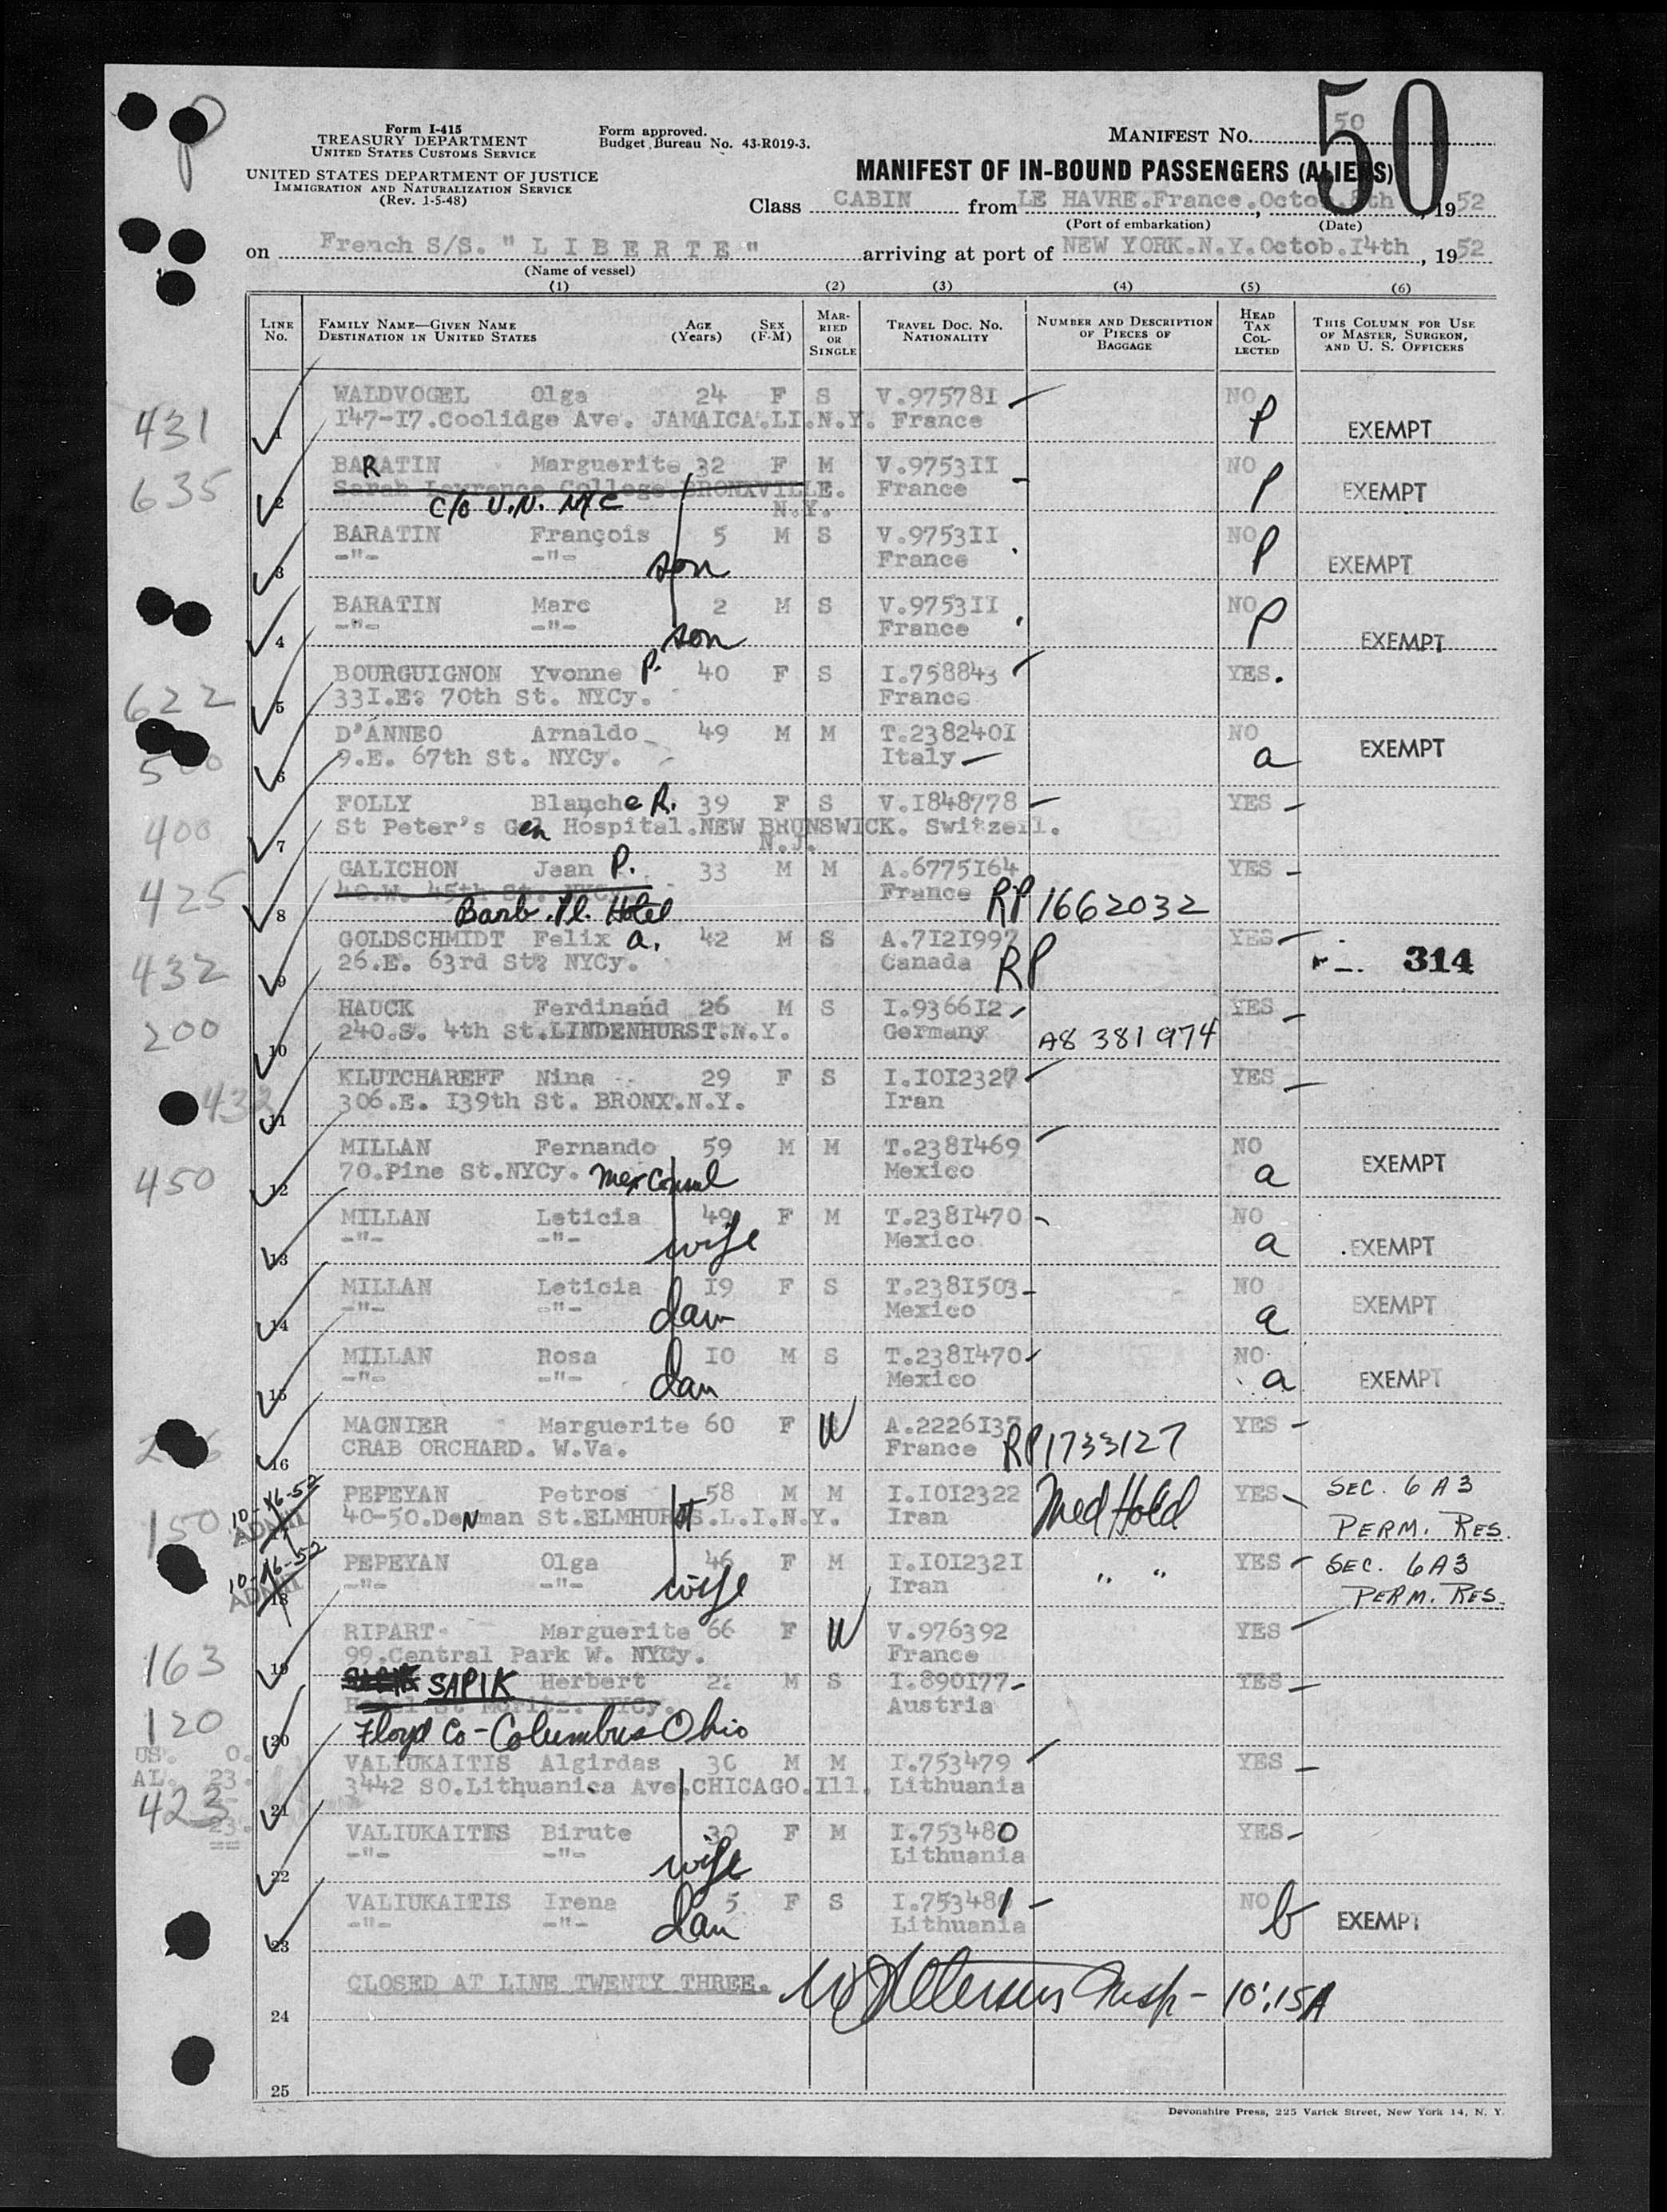 50
Form I-415
TREASURY DEPARTMENT
UNITED STATES CUSTOMS SERVICE
UNITED STATES DEPARTMENT OF JUSTICE
IMMIGRATION AND NATURALIZATION SERVICE
(Rev. 1-5-48)
Form approved.
Budget Bureau No. 43-R019-3.
MANIFEST NO. 50
MANIFEST OF IN-BOUND PASSENGERS (ALIENS)
Class CABIN from LE HAVRE.France.Octob.8th, 1952
(Port of embarkation) (Date)
on French S/S. " L I B E R T E " arriving at port of NEW YORK.N.Y.Octob.I4th, 1952
(Name of vessel)
(1) (2) (3) (4) (5) (6)
LINE No. FAMILY NAME—GIVEN NAME DESTINATION IN UNITED STATES AGE (Years) SEX (F-M) MARRIED OR SINGLE TRAVEL DOC. NO. NATIONALITY NUMBER AND DESCRIPTION OF PIECES OF BAGGAGE HEAD TAX COLLECTED THIS COLUMN FOR USE OF MASTER, SURGEON, AND U. S. OFFICERS
WALDVOGEL Olga 24 F S V.97578I NO
431 1 I47-I7.Coolidge Ave. JAMAICA.LI.N.Y. France P EXEMPT
BARATIN Marguerite 32 F M V.9753II NO
635 Sarah Lawrence College BRONXVILLE. France P EXEMPT
2 c/o U.N. NYC N.Y.
BARATIN François 5 M S V.9753II NO
3 -"- -"- son France P EXEMPT
BARATIN Marc 2 M S V.9753II NO
4 -"- -"- son France P EXEMPT
BOURGUIGNON Yvonne P. 40 F S I.758843 YES.
622 5 33I.E. 70th St. NYCy. France
D'ANNEO Arnaldo 49 M M T.238240I NO
6 9.E. 67th St. NYCy. Italy a EXEMPT
FOLLY Blanche R. 39 F S V.I848778 YES
400 7 St Peter's Gen Hospital.NEW BRUNSWICK. Switzerl.
N.J.
GALICHON Jean P. 33 M M A.6775I64 YES
425 40.W. 45th St. NYCy. France RP 1662032
8 Barb. Pl. Hotel
GOLDSCHMIDT Felix a. 42 M S A.7I2I997 YES
432 9 26.E. 63rd St. NYCy. Canada RP 314
HAUCK Ferdinand 26 M S I.9366I2 YES
200 10 240.S. 4th St.LINDENHURST.N.Y. Germany A8 381 974
KLUTCHAREFF Nina 29 F S I.IOI2327 YES
432 11 306.E. I39th St. BRONX.N.Y. Iran
MILLAN Fernando 59 M M T.238I469 NO
450 12 70.Pine St.NYCy. Mex Consul Mexico a EXEMPT
MILLAN Leticia 49 F M T.238I470 NO
13 -"- -"- wife Mexico a EXEMPT
MILLAN Leticia I9 F S T.238I503 NO
14 -"- -"- dau Mexico a EXEMPT
MILLAN Rosa IO M S T.238I470 NO
15 -"- -"- dau Mexico a EXEMPT
MAGNIER Marguerite 60 F W A.2226I37 YES
16 CRAB ORCHARD. W.Va. France RP1733127
10-16-52 PEPEYAN Petros 58 M M I.IOI2322 Med Hold YES SEC. 6A3
150 ADMIT 17 40-50.Denman St.ELMHURST.L.I.N.Y. Iran PERM. RES.
10-16-52 PEPEYAN Olga 46 F M I.IOI232I " " YES SEC. 6A3
ADMIT 18 -"- -"- wife Iran PERM. RES.
RIPART Marguerite 66 F W V.976392 YES
163 19 99.Central Park W. NYCy. France
SAPIK Herbert 22 M S I.890I77 YES
120 Hotel St Moritz. NYCy. Austria
20 Floyd Co - Columbus Ohio
US. 0.
AL. 23.
23.
VALIUKAITIS Algirdas 30 M M I.753479 YES
423 21 3442 SO.Lithuanica Ave.CHICAGO.Ill. Lithuania
VALIUKAITIS Birute 30 F M I.753480 YES
22 -"- -"- wife Lithuania
VALIUKAITIS Irena 5 F S I.753481 NO
23 -"- -"- dau Lithuania b EXEMPT
CLOSED AT LINE TWENTY THREE. Insp - 10:15A
24
25
Devonshire Press, 225 Varick Street, New York 14, N. Y.